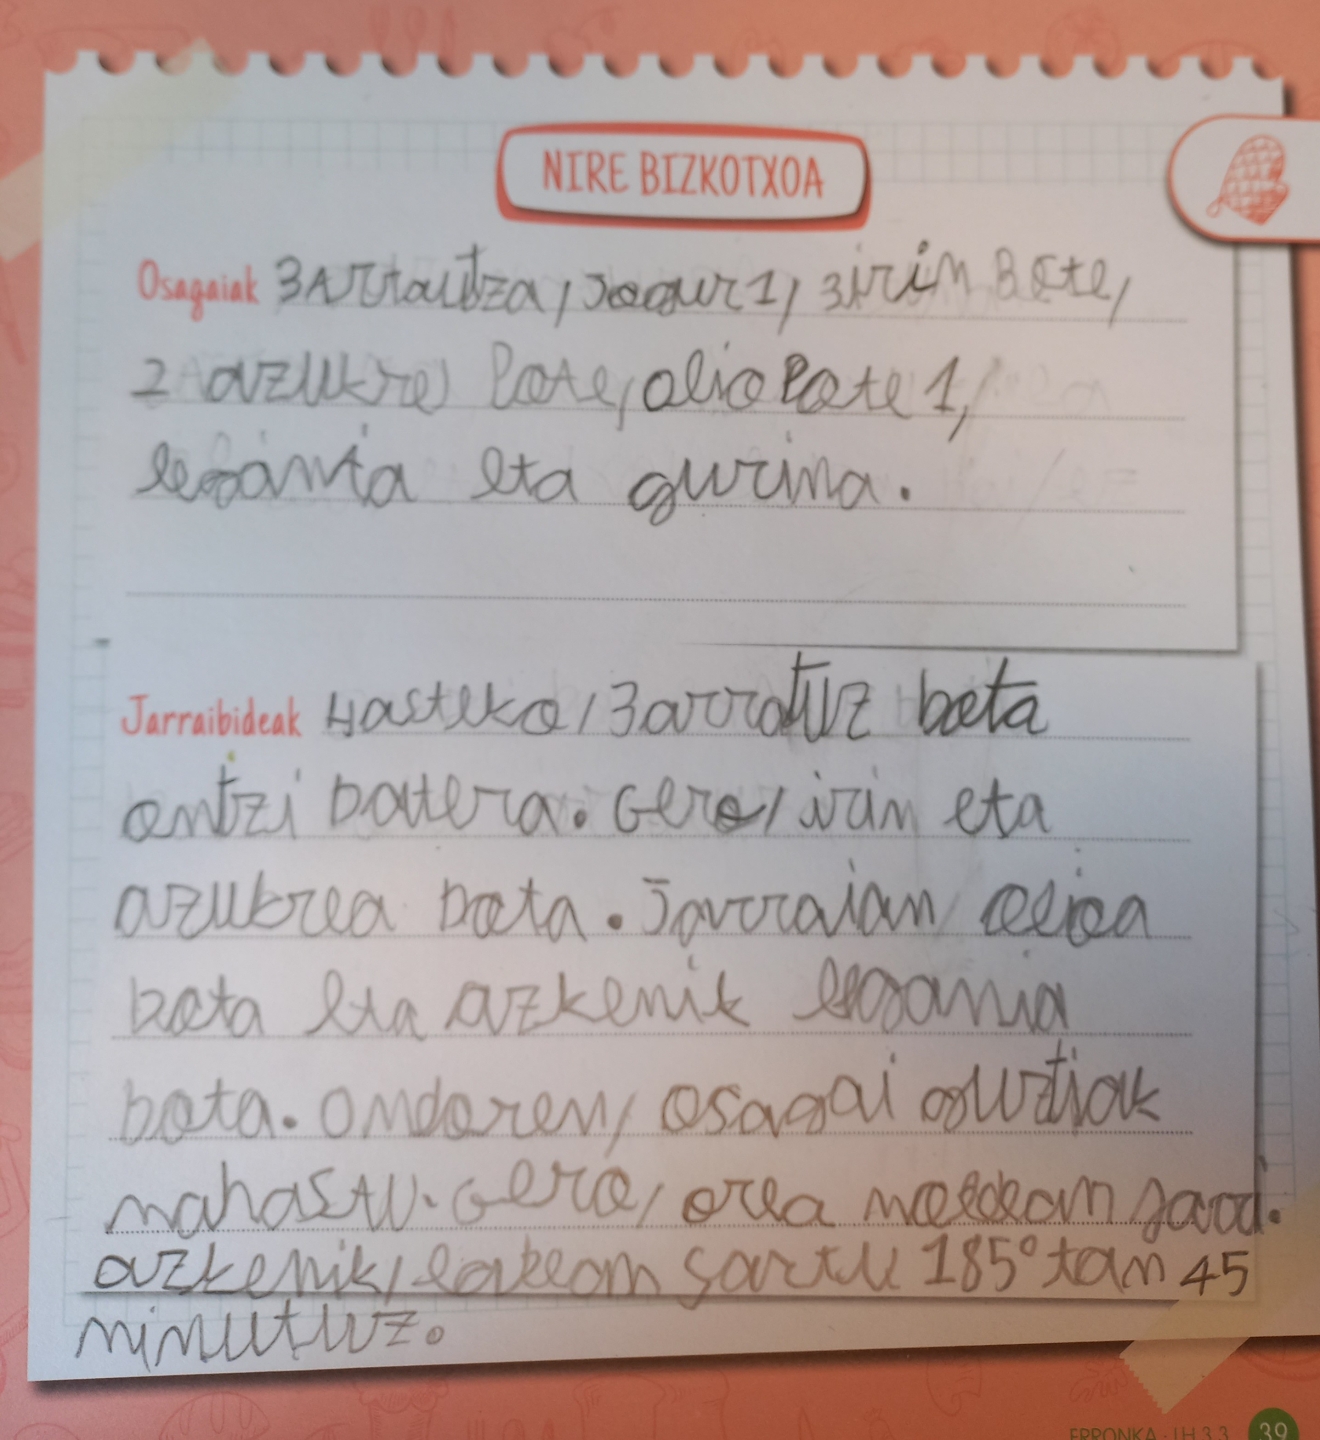 NIRE BIZKOTXOA
Osagaiak 3 Arrautza, Jogur 1, 3 irin Bote,
2 azukre bote, olio Bote 1,
legamia eta gurina.
Jarraibideak Hasteko, 3 arrautz bota
ontzi batera. Gero, irin eta
azukrea bota. Jarraian, olioa
bota eta azkenik legamia
bota. Ondoren, osagai guztiak
nahastu. Gero, orea moldean jarri.
azkenik, labean sartu 185° tan 45
minutuz.
ERRONKA · LH 3.3 39